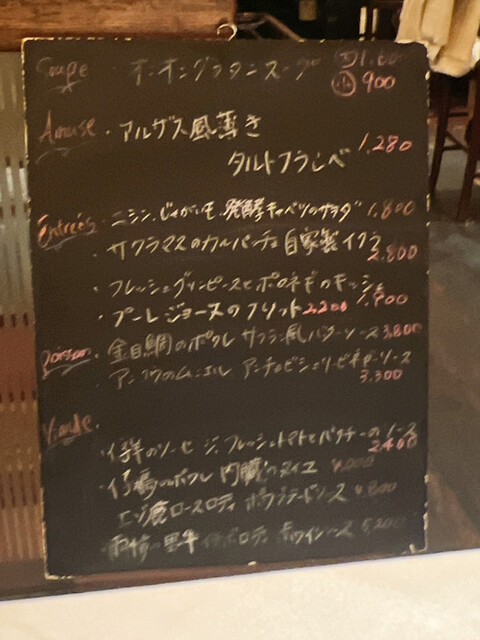 Soupe ・オニオングラタンスープ 大 1,600
小 900
Amuse ・アルザス風薄き
タルトフランベ 1,280
Entrées ・ニシン、じゃがいも、発酵キャベツのサラダ 1,800
・サクラマスのカルパッチョ 自家製イクラ
2,800
・フレッシュグリンピースとポロネギのキッシュ
1,900
・プーレジョーヌのフリット 2,200
Poisson ・金目鯛のポワレ サフラン風バターソース 3,800
・アンコウのムニエル アンチョビ ソース
3,300
Viande
・仔羊のソーセージ、フレッシュトマトとパクチーのソース
2,400
・仔鳩のポワレ 内臓のソース
エゾ鹿ロースロティ ポワヴラードソース 4,800
・黒牛 ロティ 赤ワインソース 5,200